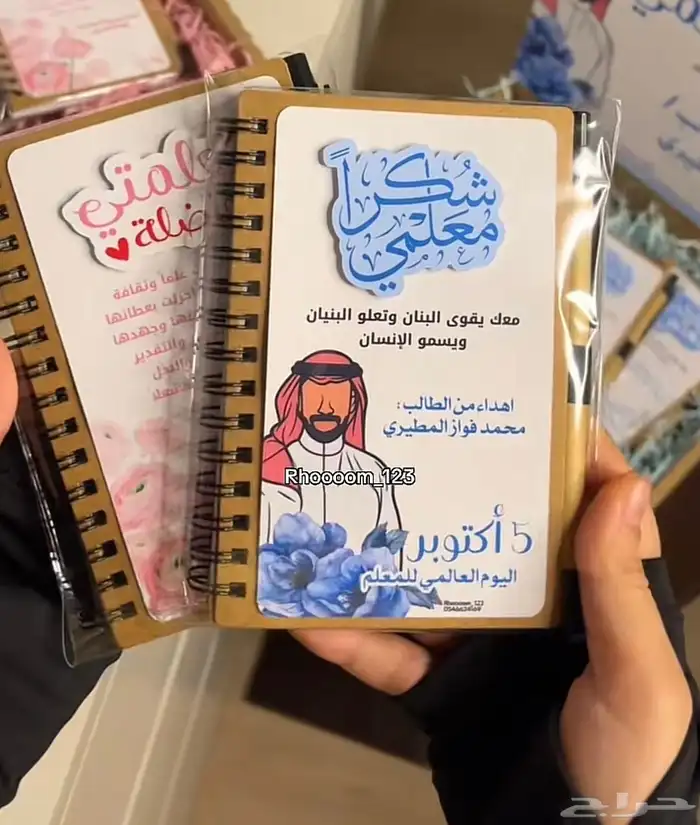 شكراً
معلمي
معك يقوى البنان وتعلو البنيان
ويسمو الإنسان
اهداء من الطالب :
محمد فواز المطيري
Rhoooom_123
5 أكتوبر
اليوم العالمي للمعلم
Rhoooom_123
علماً وثقافة
بعطائها
وجهدها
والتقدير
حراج